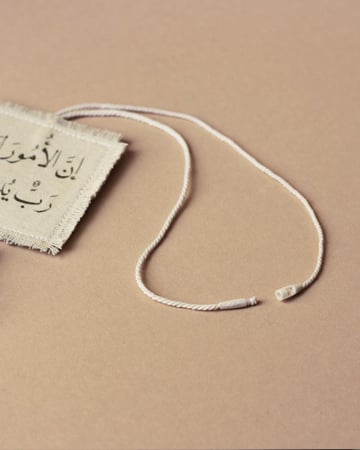 إِنَّ الأُمُورَ
رَبٌّ